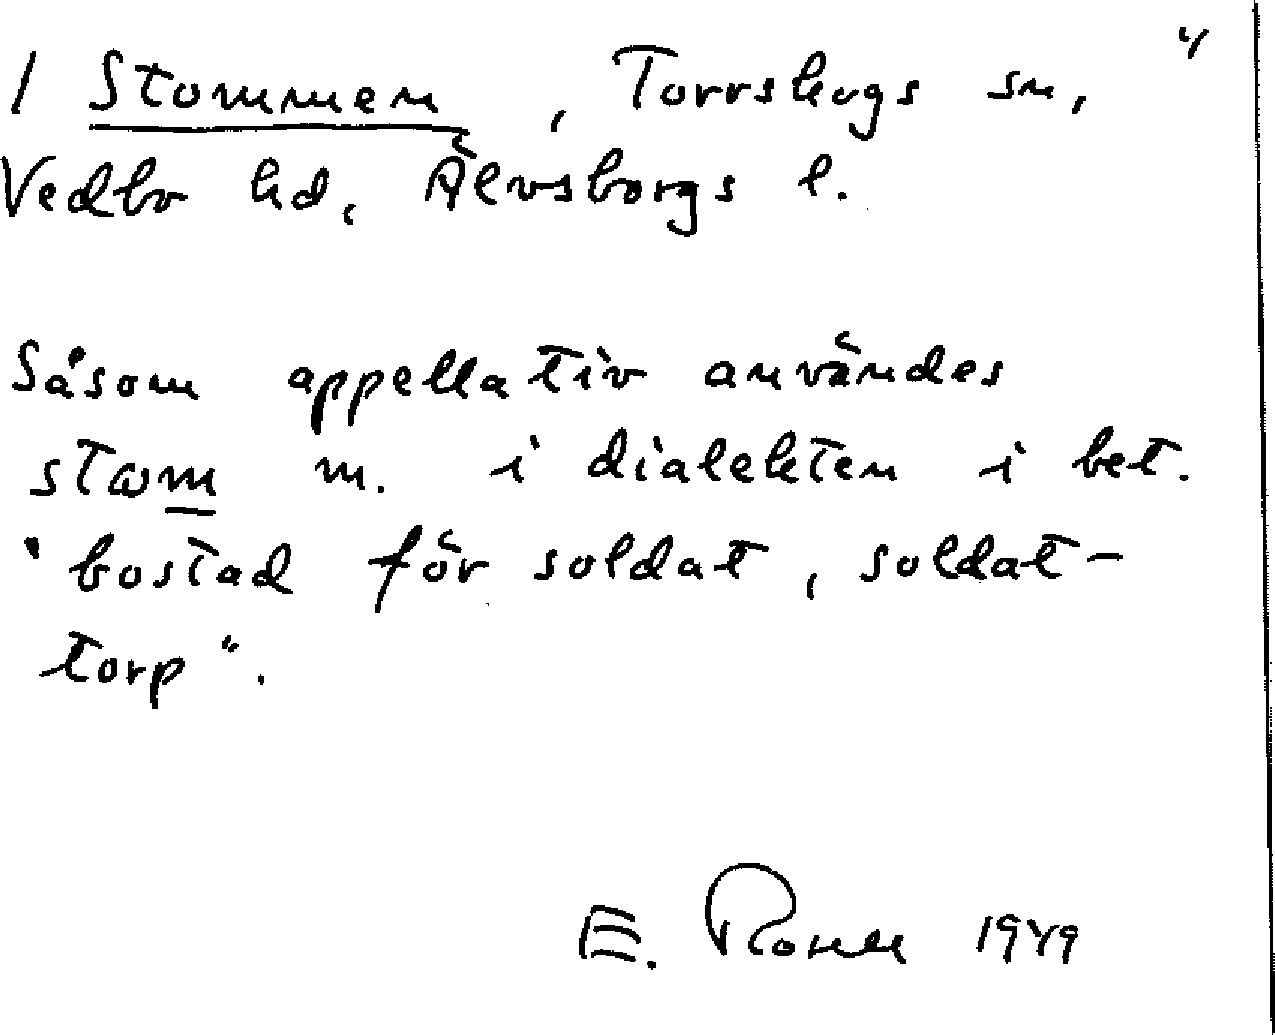 4
1 Stommen, Torrskogs sn,
Vedbo hd, Älvsborgs l.
Såsom appellativ användes
stωm m. i dialekten i bet.
"bostad för soldat, soldat-
torp".
E. 1949